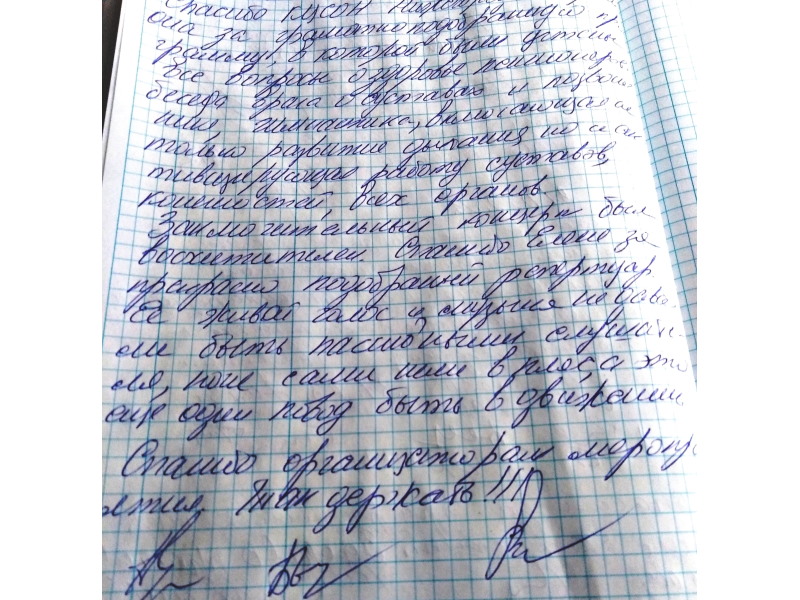 Спасибо КЦСОН
она за грамотно подобранную
грамму, в которой были
все вопросы о здоровье пенсионеров
беседа врача о суставах и
ния гимнастика, включающая
только развитие дыхания но и
тивизирующая работу суставов,
конечностей всех органов.
Заключительный концерт был
восхитителен Спасибо Елене за
прекрасно подобранный репертуар.
Её живой голос и музыка не дава-
ли быть пассивными слушат
ля, ноги сами шли в пляс а это
ещё один повод быть в движении
Спасибо организаторам меропр
ятия, Так держать!!!